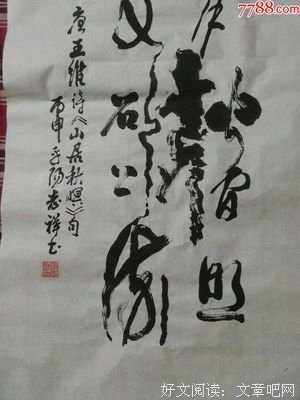 7788.com
月松间照
泉石上流
唐王维诗《山居秋暝》句
丙申
阳
祥书
好文阅读：文章吧网